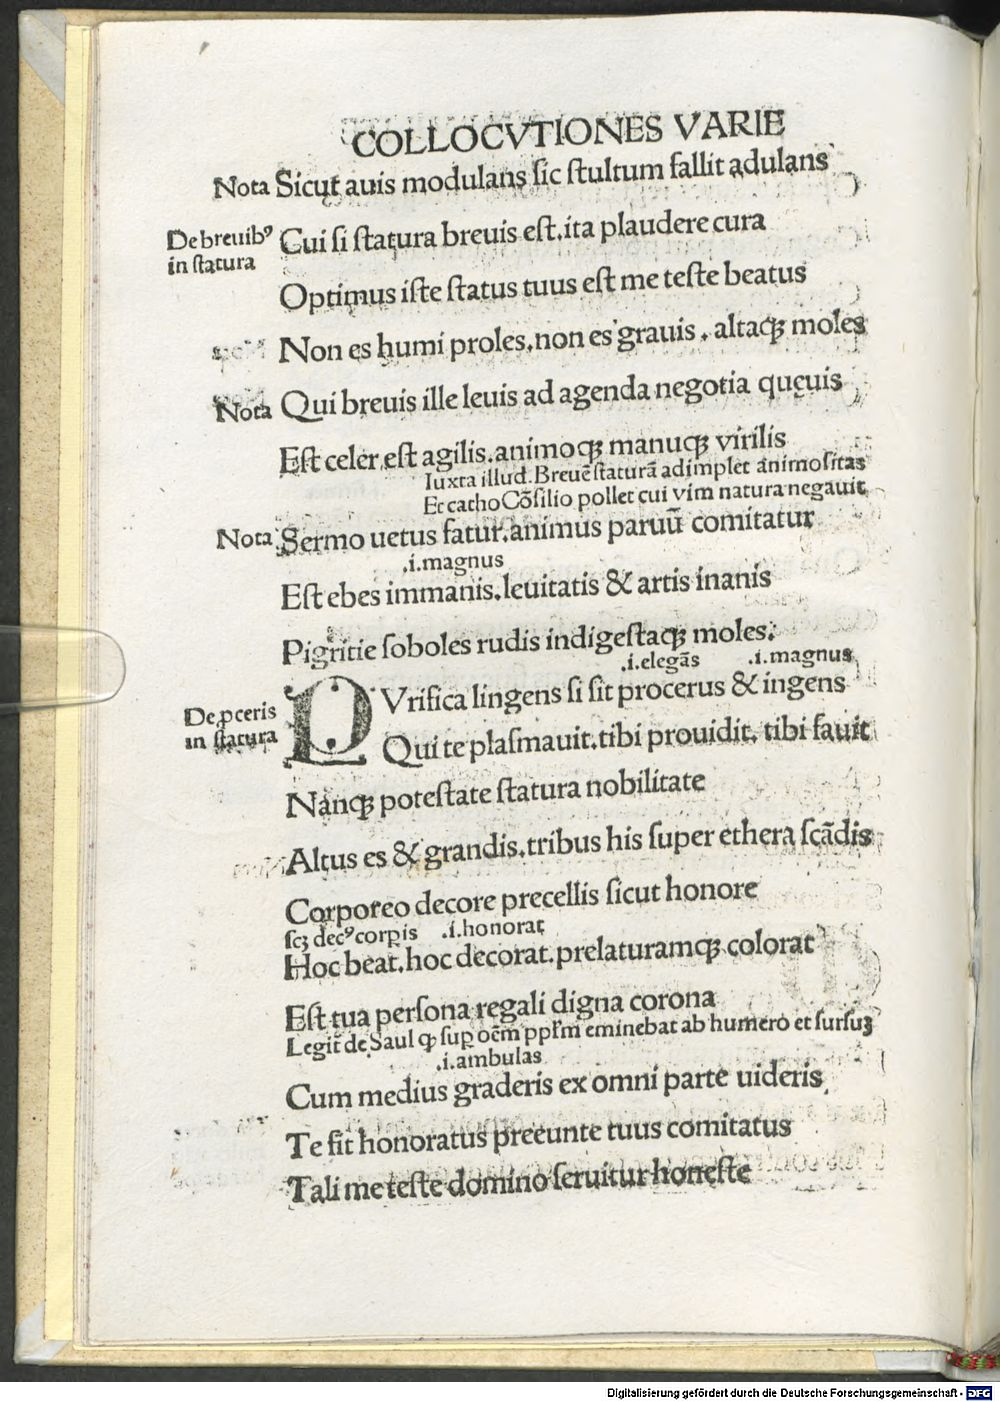 COLLOCVTIONES VARIE
Nota Sicut auis modulans sic stultum fallit adulans
De breuibꝰ in statura
Cui si statura breuis est.ita plaudere cura
Optimus iste status tuus est me teste beatus
Non es humi proles.non es grauis . altaqꝫ moles
Nota Qui breuis ille leuis ad agenda negotia quęuis
Est celer.est agilis.animoqꝫ manuqꝫ virilis
Iuxta illud.Breuē staturā adimplet animositas
Et catho Cōsilio pollet cui vim natura negauit
Nota Sermo uetus fatur.animus paruū comitatur
.i.magnus
Est ebes immanis.leuitatis & artis inanis
Pigritie soboles rudis indigestaqꝫ moles.
.i.elegās .i.magnus
De ꝓceris in statura
QVrifica lingens si sit procerus & ingens
Qui te plasmauit.tibi prouidit. tibi fauit
Nanqꝫ potestate statura nobilitate
Altus es & grandis.tribus his super ethera scādis
Corporeo decore precellis sicut honore
scꝫ decꝰ corꝑis .i.honorat
Hoc beat.hoc decorat.prelaturamqꝫ colorat
Est tua persona regali digna corona
Legit̄ de Saul ꝙ suꝑ oēm ppl̄m eminebat ab humero et sursuꝫ
.i.ambulas
Cum medius graderis ex omni parte uideris
Te fit honoratus preeunte tuus comitatus
Tali me teste domino seruitur honeste
Digitalisierung gefördert durch die Deutsche Forschungsgemeinschaft - DFG